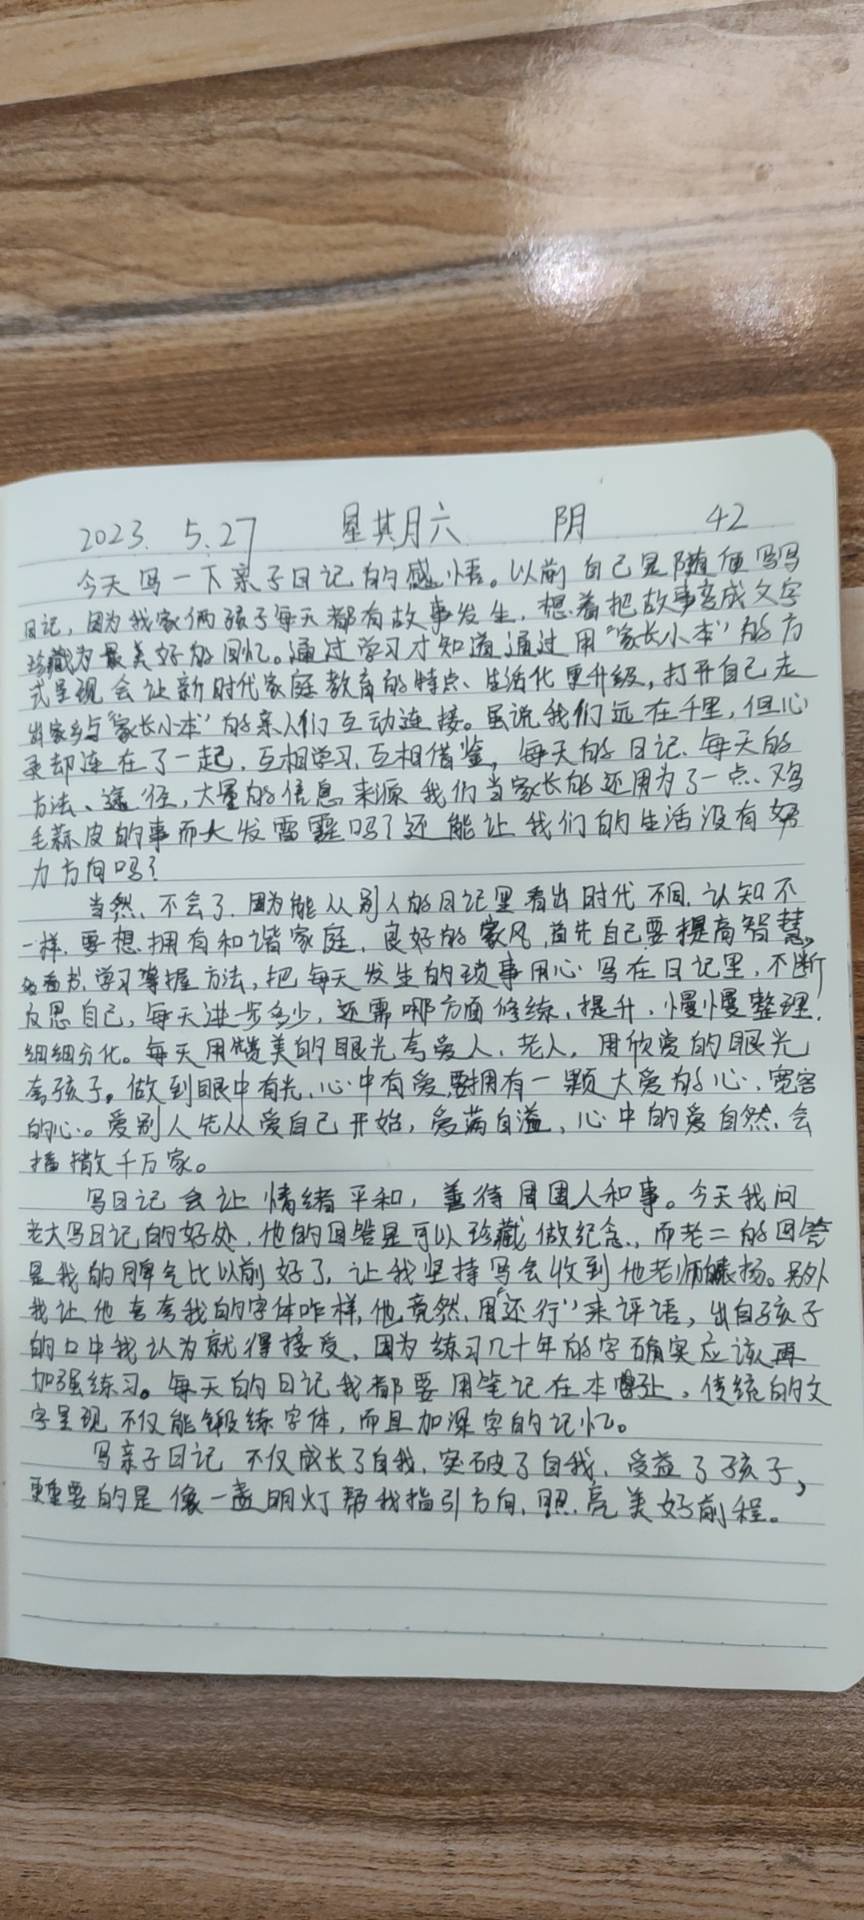 2023. 5.27 星期六 阴 42
今天写一下亲子日记的感悟。以前自己是随便写写
日记，因为我家俩孩子每天都有故事发生，想着把故事变成文字
珍藏为最美好的回忆。通过学习才知道通过用“家长小本”的方
式呈现会让新时代家庭教育的特点、生活化更升级，打开自己走
出家乡与“家长小本”的亲人们互动连接。虽说我们远在千里，但心
灵却连在了一起，互相学习，互相借鉴，每天的日记、每天的
方法、途径，大量的信息来源我们当家长的还用为了一点、鸡
毛蒜皮的事而大发雷霆吗？还能让我们的生活没有努
力方向吗？
当然、不会了，因为能从别人的日记里看出时代不同，认知不
一样，要想拥有和谐家庭，良好的家风，首先自己要提高智慧，
多看书，学习掌握方法，把每天发生的琐事用心写在日记里，不断
反思自己，每天进步多少，还需哪方面修练，提升，慢慢整理，
细细分化。每天用赞美的眼光夸爱人，老人，用欣赏的眼光
夸孩子。做到眼中有光，心中有爱，要拥有一颗大爱的心，宽容
的心。爱别人先从爱自己开始，爱满自溢，心中的爱自然，会
播撒千万家。
写日记会让情绪平和，善待周围人和事。今天我问
老大写日记的好处，他的回答是可以珍藏做纪念，而老二的回答
是我的脾气比以前好了，让我坚持写会收到他老师的表扬。另外
我让他夸夸我的字体咋样，他竟然，用“还行”来评语，出自孩子
的口中我认为就得接受，因为练习几十年的字确实应该再
加强练习。每天的日记我都要用笔记在本上，传统的文
字呈现不仅能锻练字体，而且加深字的记忆。
写亲子日记不仅成长了自我，突破了自我，受益了孩子，
更重要的是像一盏明灯帮我指引方向，照亮美好前程。